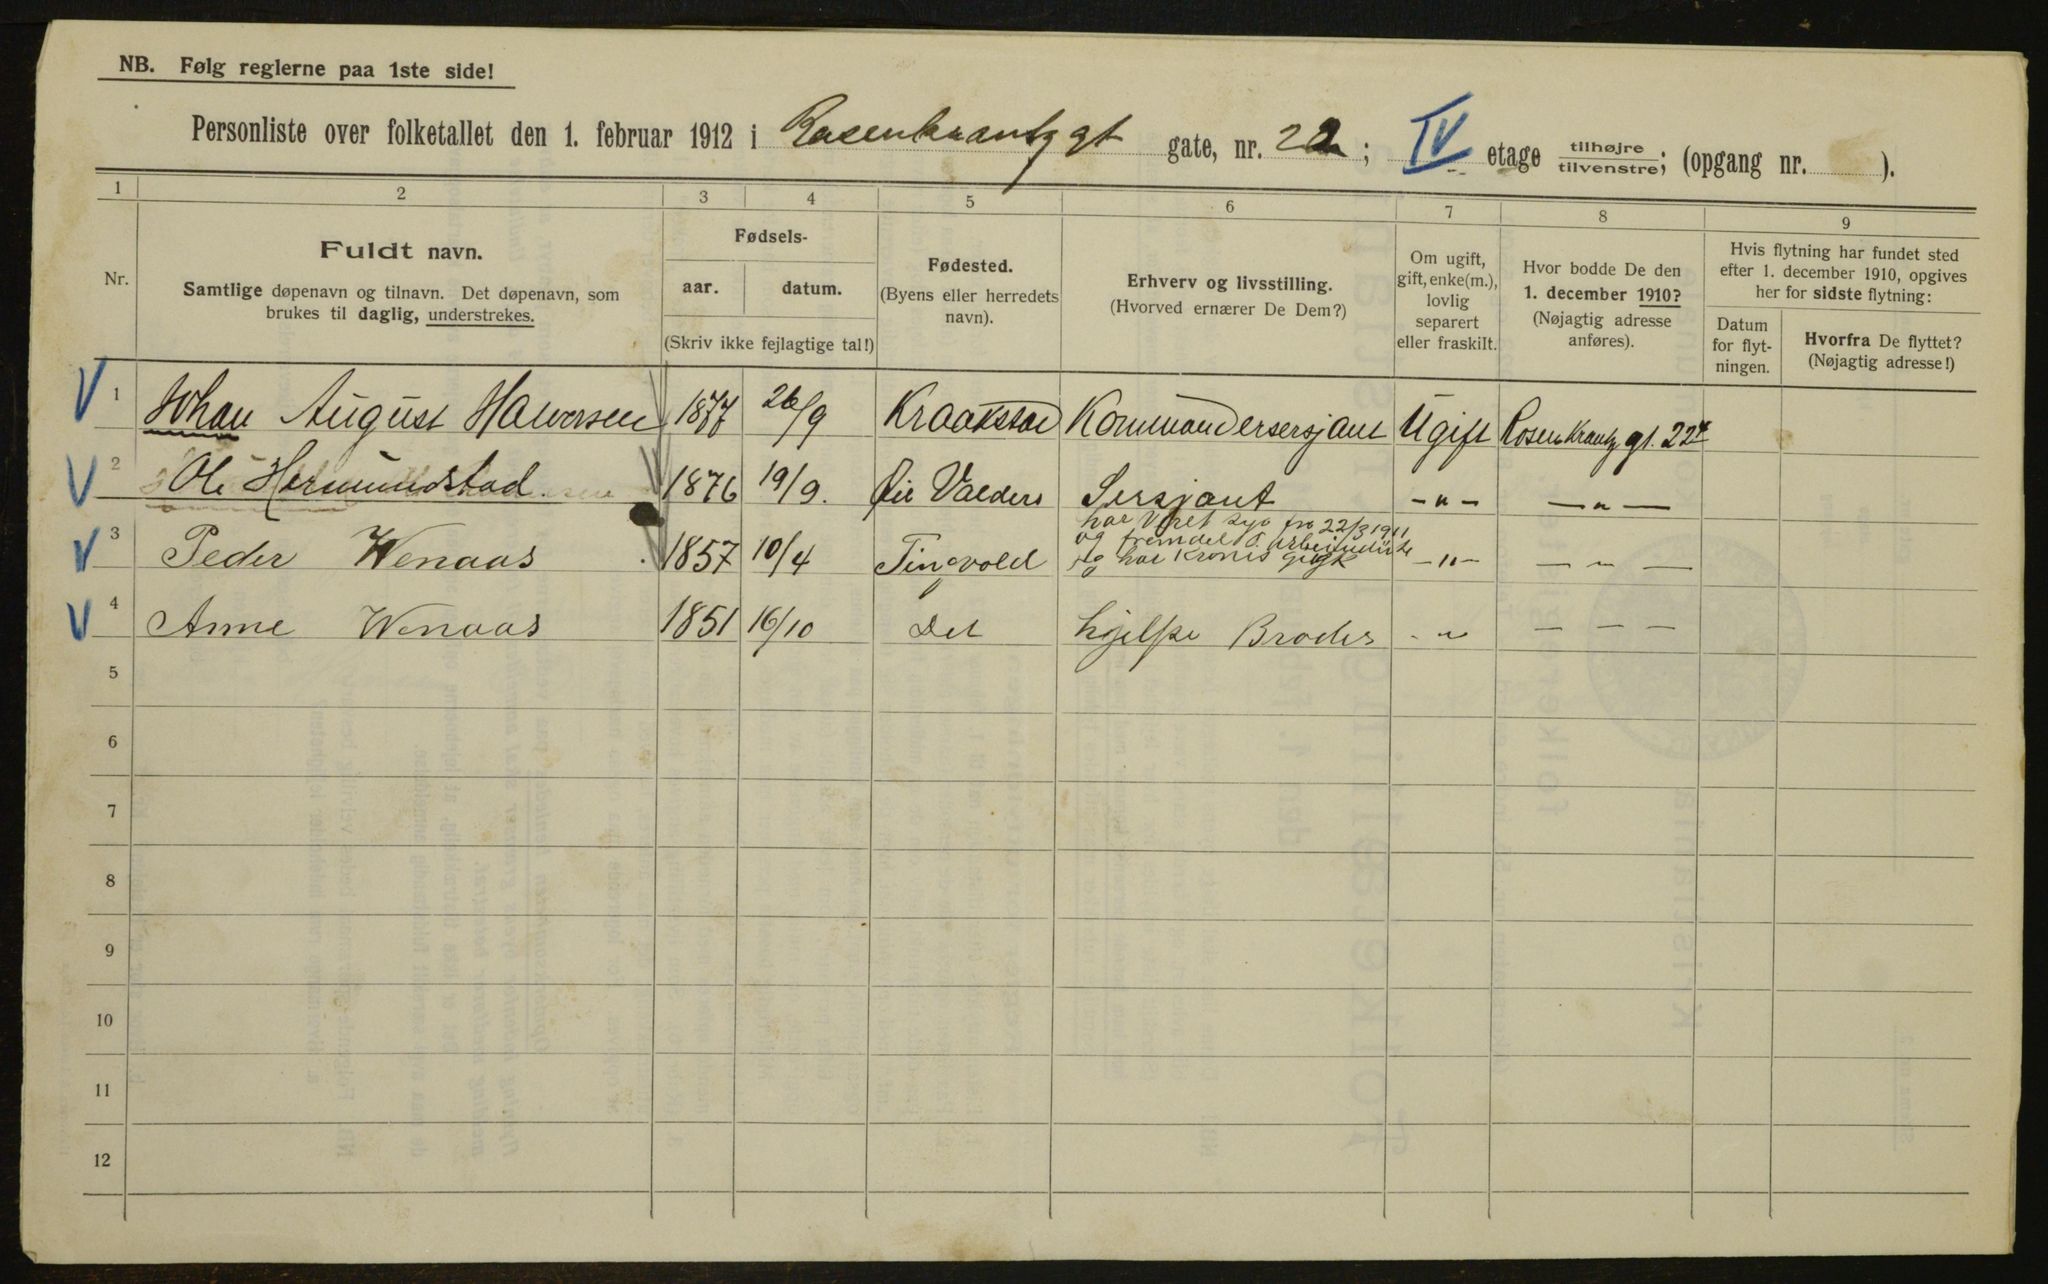 NB. Følg reglerne paa 1ste side!
Personliste over folketallet den 1. februar 1912 i Rosenkrantz gt gate, nr. 22; IV etage tilhøjre/tilvenstre; (opgang nr. ).
1 2 3 4 5 6 7 8 9
Nr.
Fuldt navn.
Samtlige døpenavn og tilnavn. Det døpenavn, som
brukes til daglig, understrekes.
Fødsels-
aar. datum.
(Skriv ikke fejlagtige tal!)
Fødested.
(Byens eller herredets
navn).
Erhverv og livsstilling.
(Hvorved ernærer De Dem?)
Om ugift,
gift, enke(m.),
lovlig
separert
eller fraskilt.
Hvor bodde De den
1. december 1910?
(Nøjagtig adresse
anføres).
Hvis flytning har fundet sted
efter 1. december 1910, opgives
her for sidste flytning:
Datum
for flyt-
ningen.
Hvorfra De flyttet?
(Nøjagtig adresse!)
1 Johan August Halvorsen 1877 26/9 Kraakstad Kommandersersjant Ugift Rosenkrantz gt. 22
2 Ole Hermundstad 1876 19/9. Valders Sersjant -"- -"-
3 Peder Wenaas 1857 10/4 Tingvold har veret syg fra 22/3 1911
og fremdel
og har Kronis -"- -"-
4 Anne Wenaas 1851 16/10 Det hjelpe Broder -"- - - -
5
6
7
8
9
10
11
12